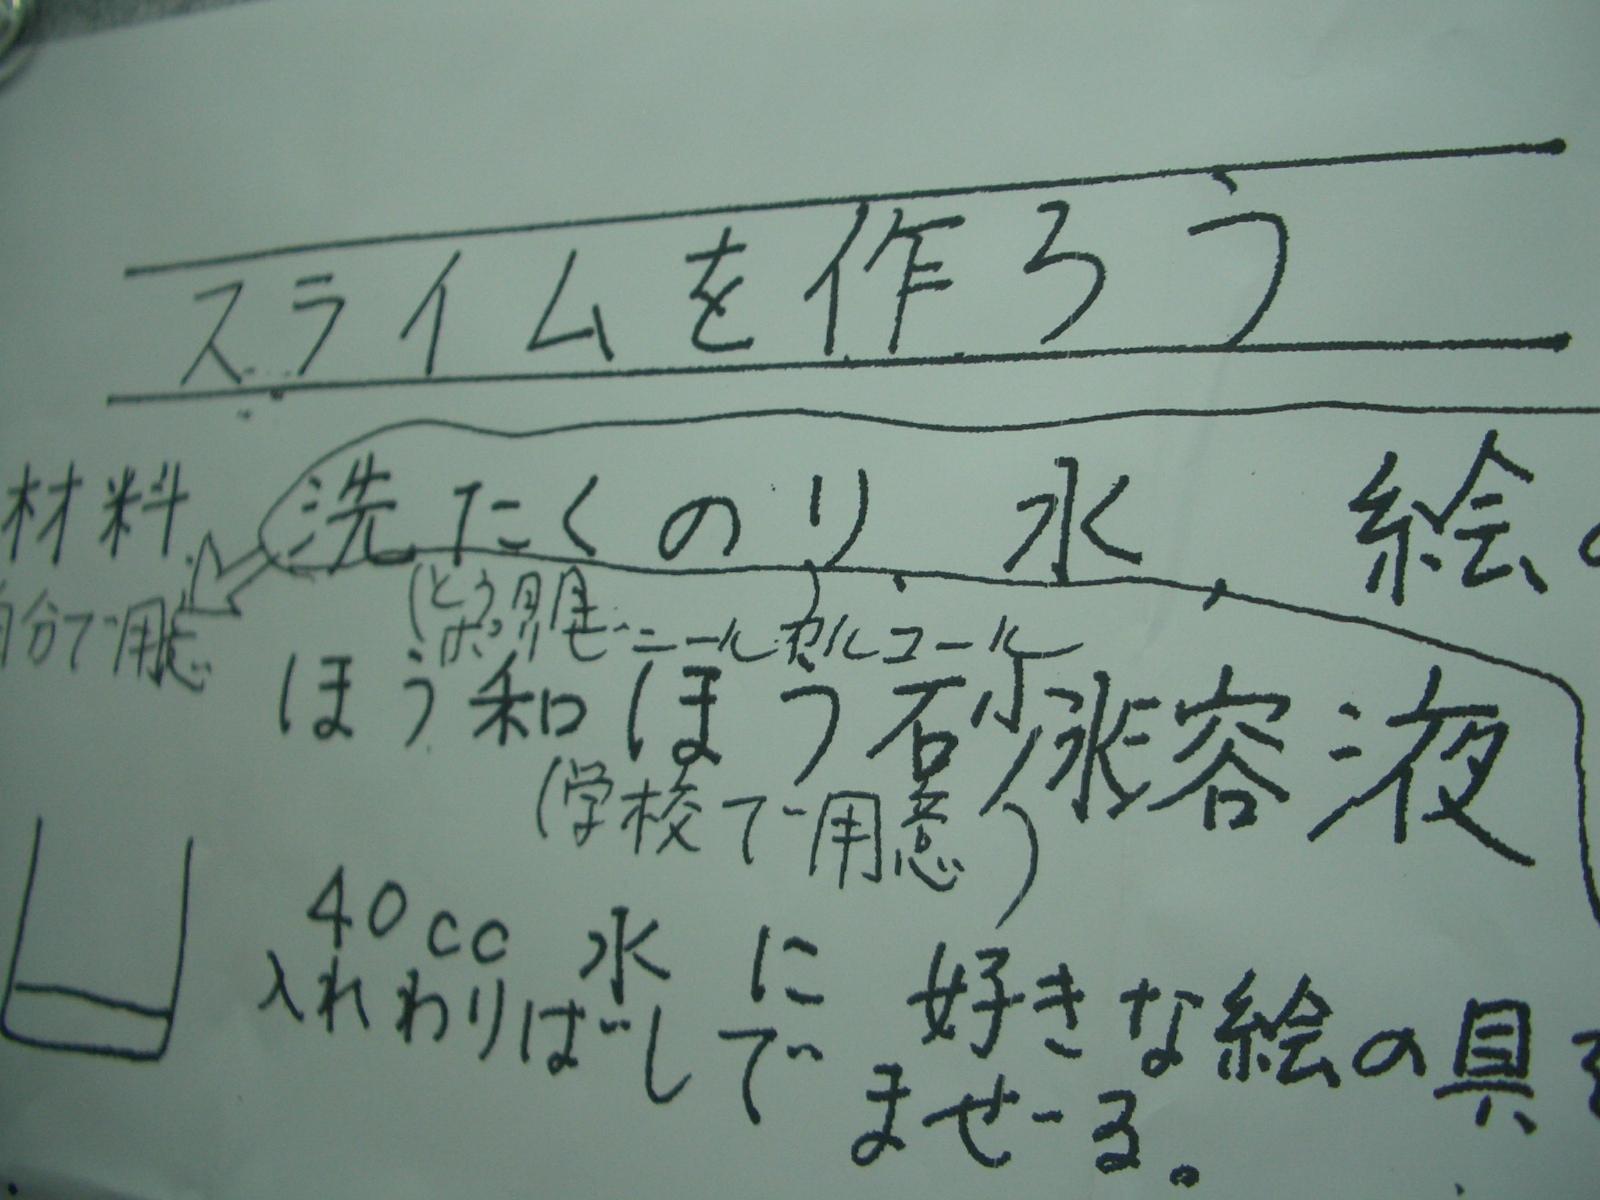 スライムを作ろう
材料 洗たくのり 水 絵の
自分で用意
(とう明
ポリビニールアルコール)
ほう和ほう砂水容液
(学校で用意)
40cc 水に 好きな絵の具を
入れわりばしで
まぜる。